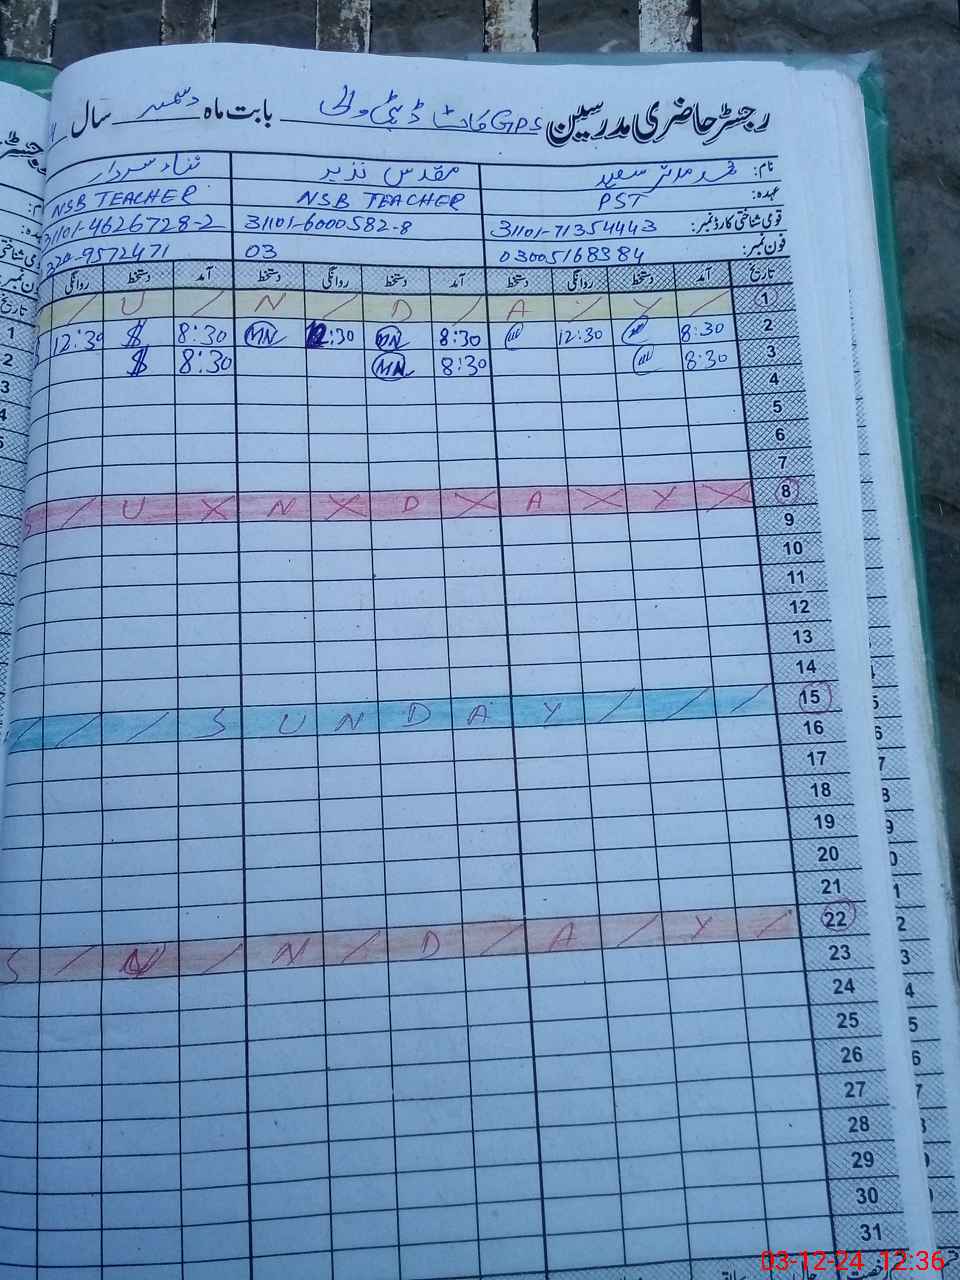 رجسٹر حاضری مدرسین GPS بابت ماہ دسمبر سال
نام: مقدس نذیر ثناء سردار
عہدہ: PST NSB TEACHER NSB TEACHER
قومی شناختی کارڈ نمبر: 31101-71354443 31101-6000582-8 31101-4626728-2
فون نمبر: 03005168384 03
تاریخ آمد دستخط روانگی دستخط آمد دستخط روانگی دستخط آمد دستخط روانگی
1 / Y / A / D / N / U /
2 8:30 12:30 8:30 DN 12:30 MN 8:30 $ 12:30
3 8:30 8:30 MN 8:30 $
4
5
6
7
8 S / U X N X D X A X Y X
9
10
11
12
13
14
15 / / / S U N D A Y / / /
16
17
18
19
20
21
22 S / U / N / D / A / Y /
23
24
25
26
27
28
29
30
31
03-12-24 12:36